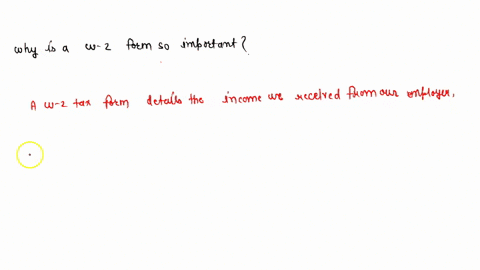 why is a w-2 form so important?
A w-2 tax form details the income we received from our employer.